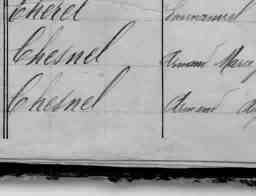 Cherel Emmanuel
Chesnel Armand Marce
Chesnel Armand